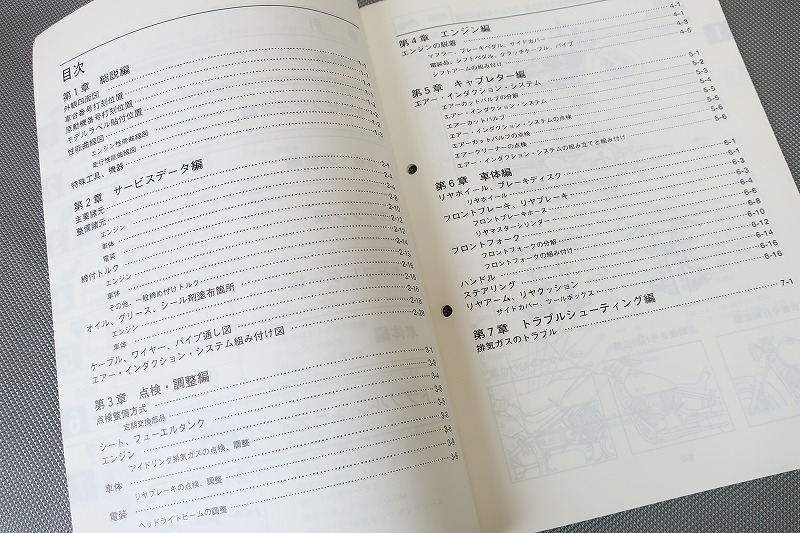 目次
第1章 総説編
外観四面図
車台番号打刻位置
原動機番号打刻位置
モデルラベル貼付位置
性能曲線図
エンジン性能曲線図
走行性能曲線図
特殊工具、機器
第2章 サービスデータ編
主要諸元
整備諸元
エンジン
車体
電装
締付トルク
エンジン
車体
その他、一般締め付けトルク
オイル、グリース、シール剤塗布箇所
エンジン
車体
ケーブル、ワイヤー、パイプ通し図
エアー・インダクション・システム組み付け図
第3章 点検・調整編
点検整備方式
定期交換部品
シート、フューエルタンク
エンジン
アイドリング排気ガスの点検、調整
車体
リヤブレーキの点検、調整
電装
ヘッドライトビームの調整
第4章 エンジン編 4-1
エンジンの脱着 4-1
マフラー、ブレーキペダル、サイドカバー 4-3
電装品、シフトペダル、クラッチケーブル、パイプ 4-5
シフトアームの組み付け
第5章 キャブレター編 5-1
エアー・インダクション・システム 5-2
エアーカットバルブの分解 5-3
エアー・インダクション・システム 5-4
エアーカットバルブ 5-5
エアー・インダクション・システムの点検 5-5
エアーカットバルブの点検 5-6
エアークリーナーの点検 5-6
エアー・インダクション・システムの組み立てと組み付け
第6章 車体編 6-1
リヤホイール、ブレーキディスク 6-1
リヤホイール 6-3
フロントブレーキ、リヤブレーキ 6-3
フロントブレーキホース 6-4
リヤマスターシリンダー 6-6
フロントフォーク 6-8
フロントフォークの分解 6-10
フロントフォークの組み付け 6-12
ハンドル 6-14
ステアリング 6-16
リヤアーム、リヤクッション 6-16
サイドカバー、ツールボックス
第7章 トラブルシューティング編 7-1
排気ガスのトラブル